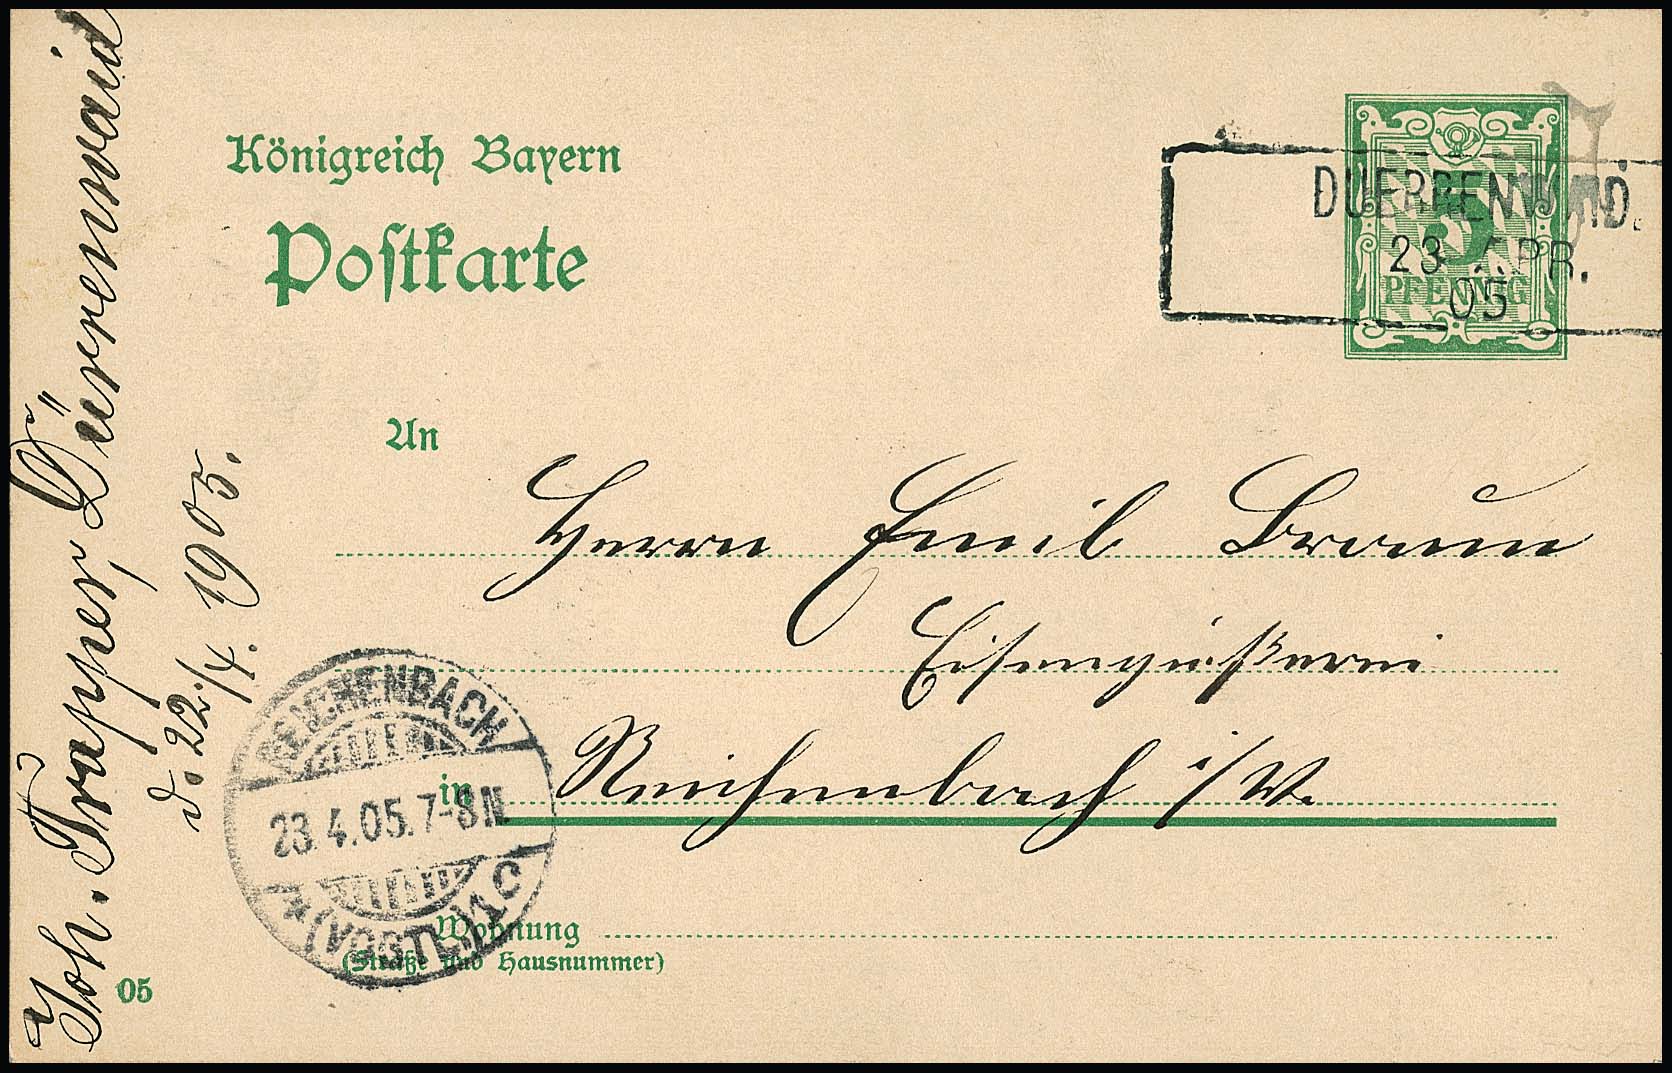 Königreich Bayern
Postkarte
DUERRENWAID.
23 APR.
05
5
PFENNIG
An
Herrn Emil Braun
Eisengießerei
in Reichenbach i/V.
Wohnung
(Straße und Hausnummer)
05
Joh. Trapper, Dürrenwaid
d. 22./4. 1905.
REICHENBACH
23.4.05.7-8 N
*(VOGTL.)1 C